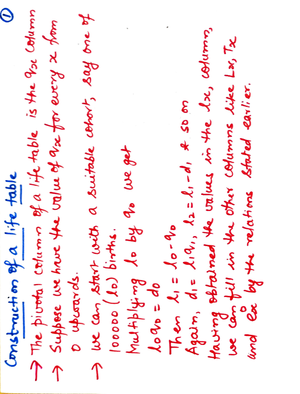 ①
Construction of a life table
→ The pivotal column of a life table is the qx column
→ Suppose we have the value of qx for every x from
0 upwards.
→ we can start with a suitable cohort, say one of
100000 (l0) births.
Multiplying l0 by q0 we get
l0q0 = d0
Then l1 = l0 - q0
Again, d1 = l1q1, l2 = l1 - d1 & so on
Having obtained the values in the lx, column,
we can fill in the other columns like Lx, Tx
and e̊x by the relations stated earlier.